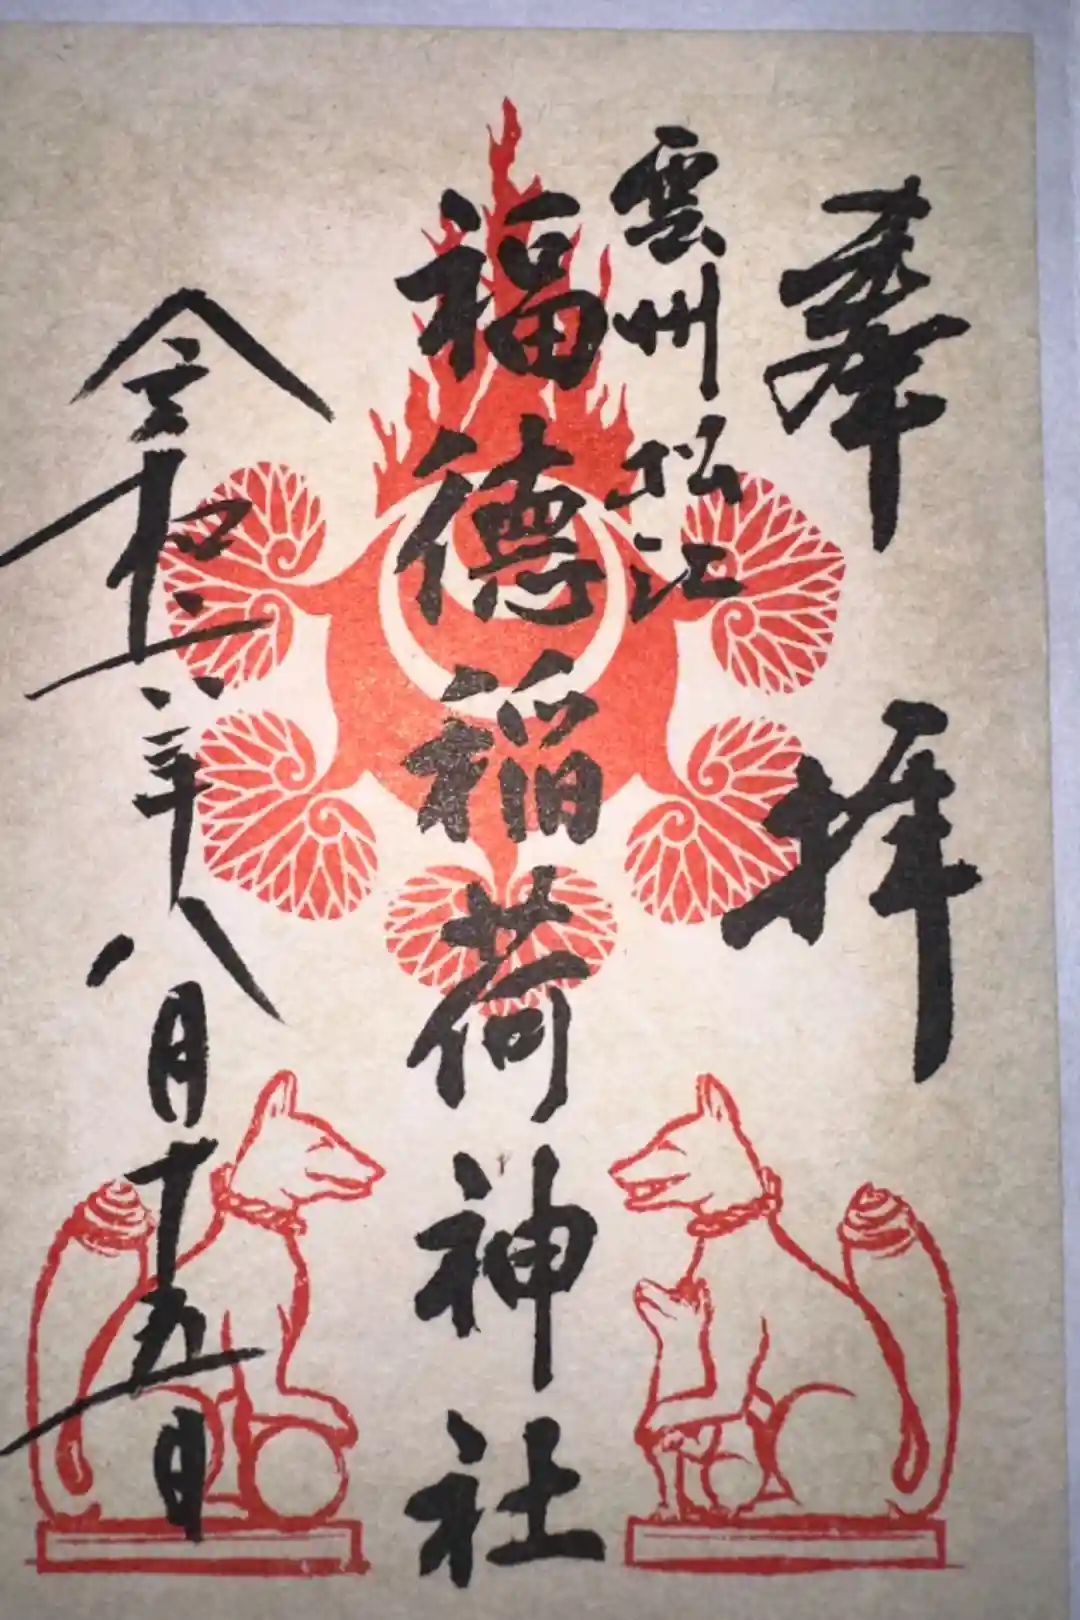 奉拝
雲州松江
福德稲荷神社
令和六年八月十五日